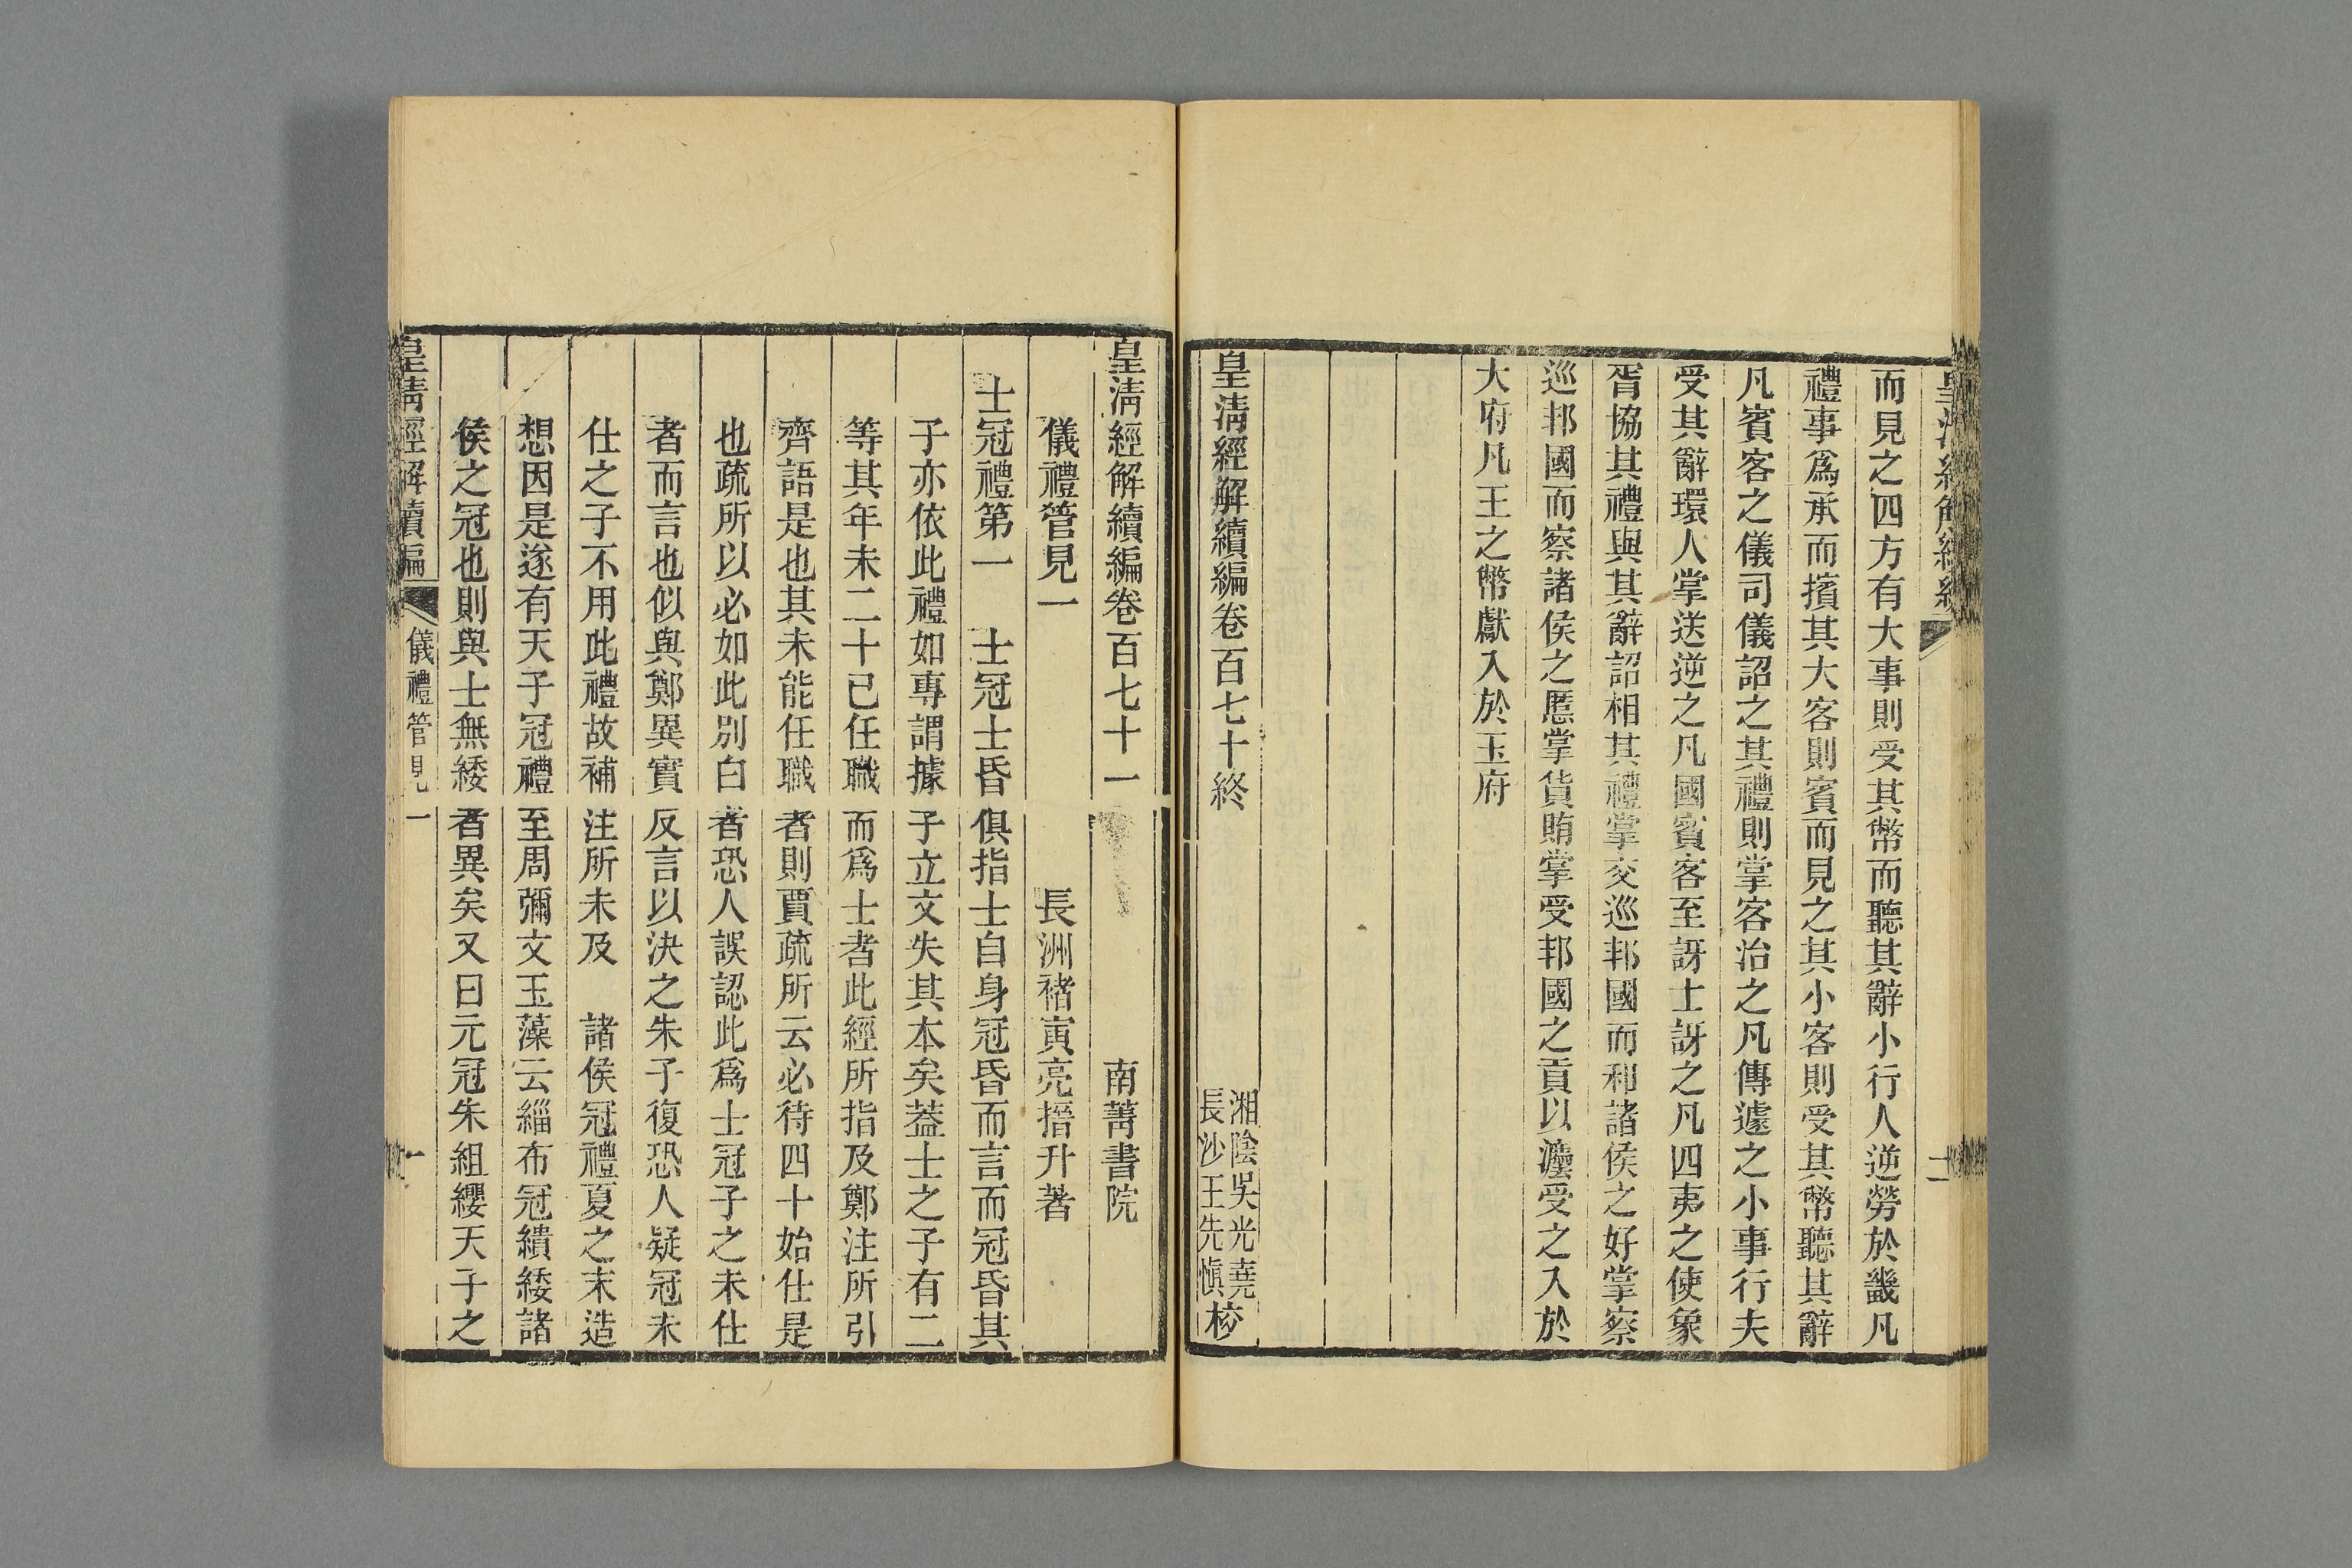 而見之四方有大事則受其幣而聽其辭小行人逆勞於畿凡
禮事爲承而擯其大客則賓而見之其小客則受其幣聽其辭
凡賓客之儀司儀詔之其禮則掌客治之凡傳遽之小事行夫
受其辭環人掌送逆之凡國賓客至訝士訝之凡四夷之使象
胥協其禮與其辭詔相其禮掌交巡邦國而和諸侯之好掌察
巡邦國而察諸侯之慝掌貨賄掌受邦國之貢以灋受之入於
大府凡王之幣獻入於玉府
皇淸經解續編卷百七十終
湘陰吳光堯
長沙王先愼
校
皇淸經解續編卷百七十一
南菁書院
儀禮管見一
長洲褚寅亮搢升著
士冠禮第一 士冠士昏俱指士自身冠昏而言而冠昏其
子亦依此禮如專謂據子立文失其本矣葢士之子有二
等其年未二十已任職而爲士者此經所指及鄭注所引
齊語是也其未能任職者則賈疏所云必待四十始仕是
也疏所以必如此別白者恐人誤認此爲士冠子之未仕
者而言也似與鄭異實反言以決之朱子復恐人疑冠未
仕之子不用此禮故補注所未及 諸侯冠禮夏之末造
想因是遂有天子冠禮至周彌文玉藻云緇布冠繢緌諸
侯之冠也則與士無緌者異矣又曰元冠朱組纓天子之
皇淸經解續編
儀禮管見一
一